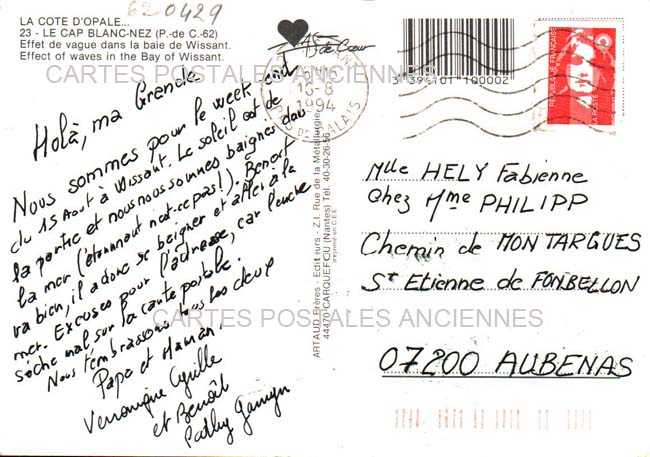 620429
LA COTE D'OPALE...
23 - LE CAP BLANC-NEZ (P.-de C.-62)
Effet de vague dans la baie de Wissant.
Effect of waves in the Bay of Wissant.
CARTES POSTALES ANCIENNES
Holà, ma Grande
Nous sommes pour le week end
du 15 Août à Wissant. Le soleil est de
la partie et nous nous sommes baignés dans
la mer (étonnant n'est-ce pas!). Benoit
va bien, il a donc se baigner et aller à la
mer. Excuses pour l'adresse, car l'encre
sèche mal sur la carte postale.
Nous t'embrassons tous les deux
Papa et Maman.
Veronique Cyrille
et Benoît
ARTAUD Frères - Editeurs - Z.I. Rue de la Métallurgie
44470 CARQUEFOU (Nantes) Tél. 40-30-26-56
Imprimé en C.E.E.
As de Cœur
3 394101 100002
16-8
1994
PAS DE CALAIS
REPUBLIQUE FRANÇAISE
LA POSTE
Mlle HELY Fabienne
Chez Mme PHILIPP
Chemin de MONTARGUES
St Etienne de FONBELLON
CARTES POSTALES ANCIENNES
07200 AUBENAS